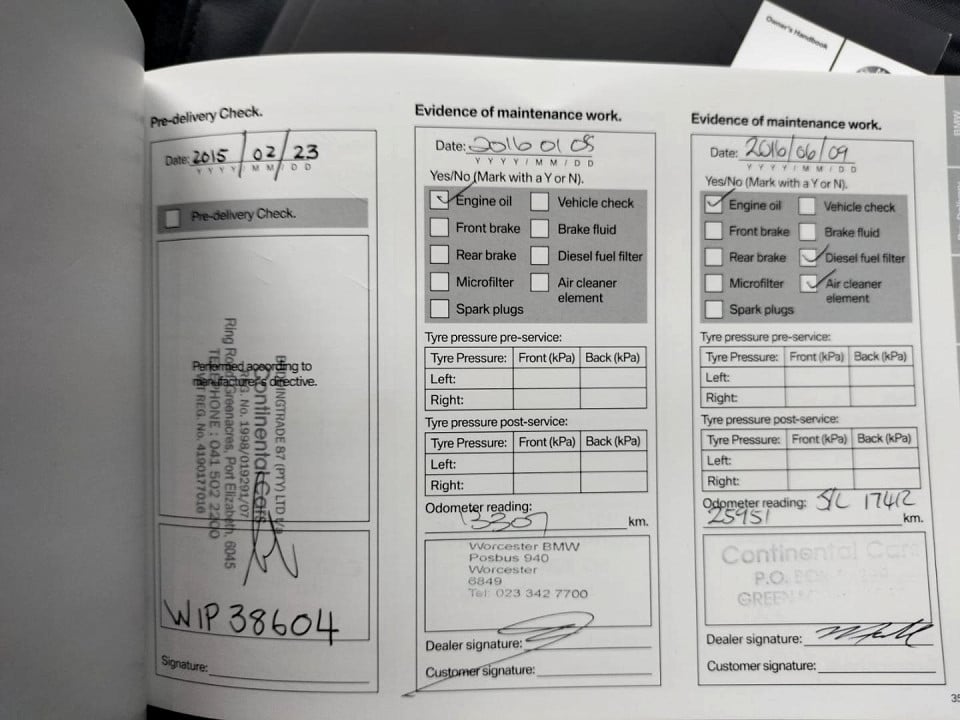 Owner's Handbook
Pre-delivery Check.
Date: 2015/02/23
Y Y Y Y / M M / D D
Pre-delivery Check.
Performed according to
manufacturer's directive.
BUZZ TRADE 87 (PTY) LTD t/a
Continental Cars
REG. No. 1998/019291/07
Ring Road, Greenacres, Port Elizabeth, 6045
TELEPHONE : 041 502 2200
VAT REG. No. 4190177016
WIP 38604
Signature:
Evidence of maintenance work.
Date: 2016 01 05
Y Y Y Y / M M / D D
Yes/No (Mark with a Y or N).
Engine oil Vehicle check
Front brake Brake fluid
Rear brake Diesel fuel filter
Microfilter Air cleaner
element
Spark plugs
Tyre pressure pre-service:
Tyre Pressure: Front (kPa) Back (kPa)
Left:
Right:
Tyre pressure post-service:
Tyre Pressure: Front (kPa) Back (kPa)
Left:
Right:
Odometer reading:
13307 km.
Worcester BMW
Posbus 940
Worcester
6849
Tel: 023 342 7700
Dealer signature:
Customer signature:
Evidence of maintenance work.
Date: 2016/06/09
Y Y Y Y / M M / D D
Yes/No (Mark with a Y or N).
Engine oil Vehicle check
Front brake Brake fluid
Rear brake Diesel fuel filter
Microfilter Air cleaner
element
Spark plugs
Tyre pressure pre-service:
Tyre Pressure: Front (kPa) Back (kPa)
Left:
Right:
Tyre pressure post-service:
Tyre Pressure: Front (kPa) Back (kPa)
Left:
Right:
Odometer reading:
25951 km.
Continental Cars
P.O. BOX
Dealer signature:
Customer signature:
35
BMW